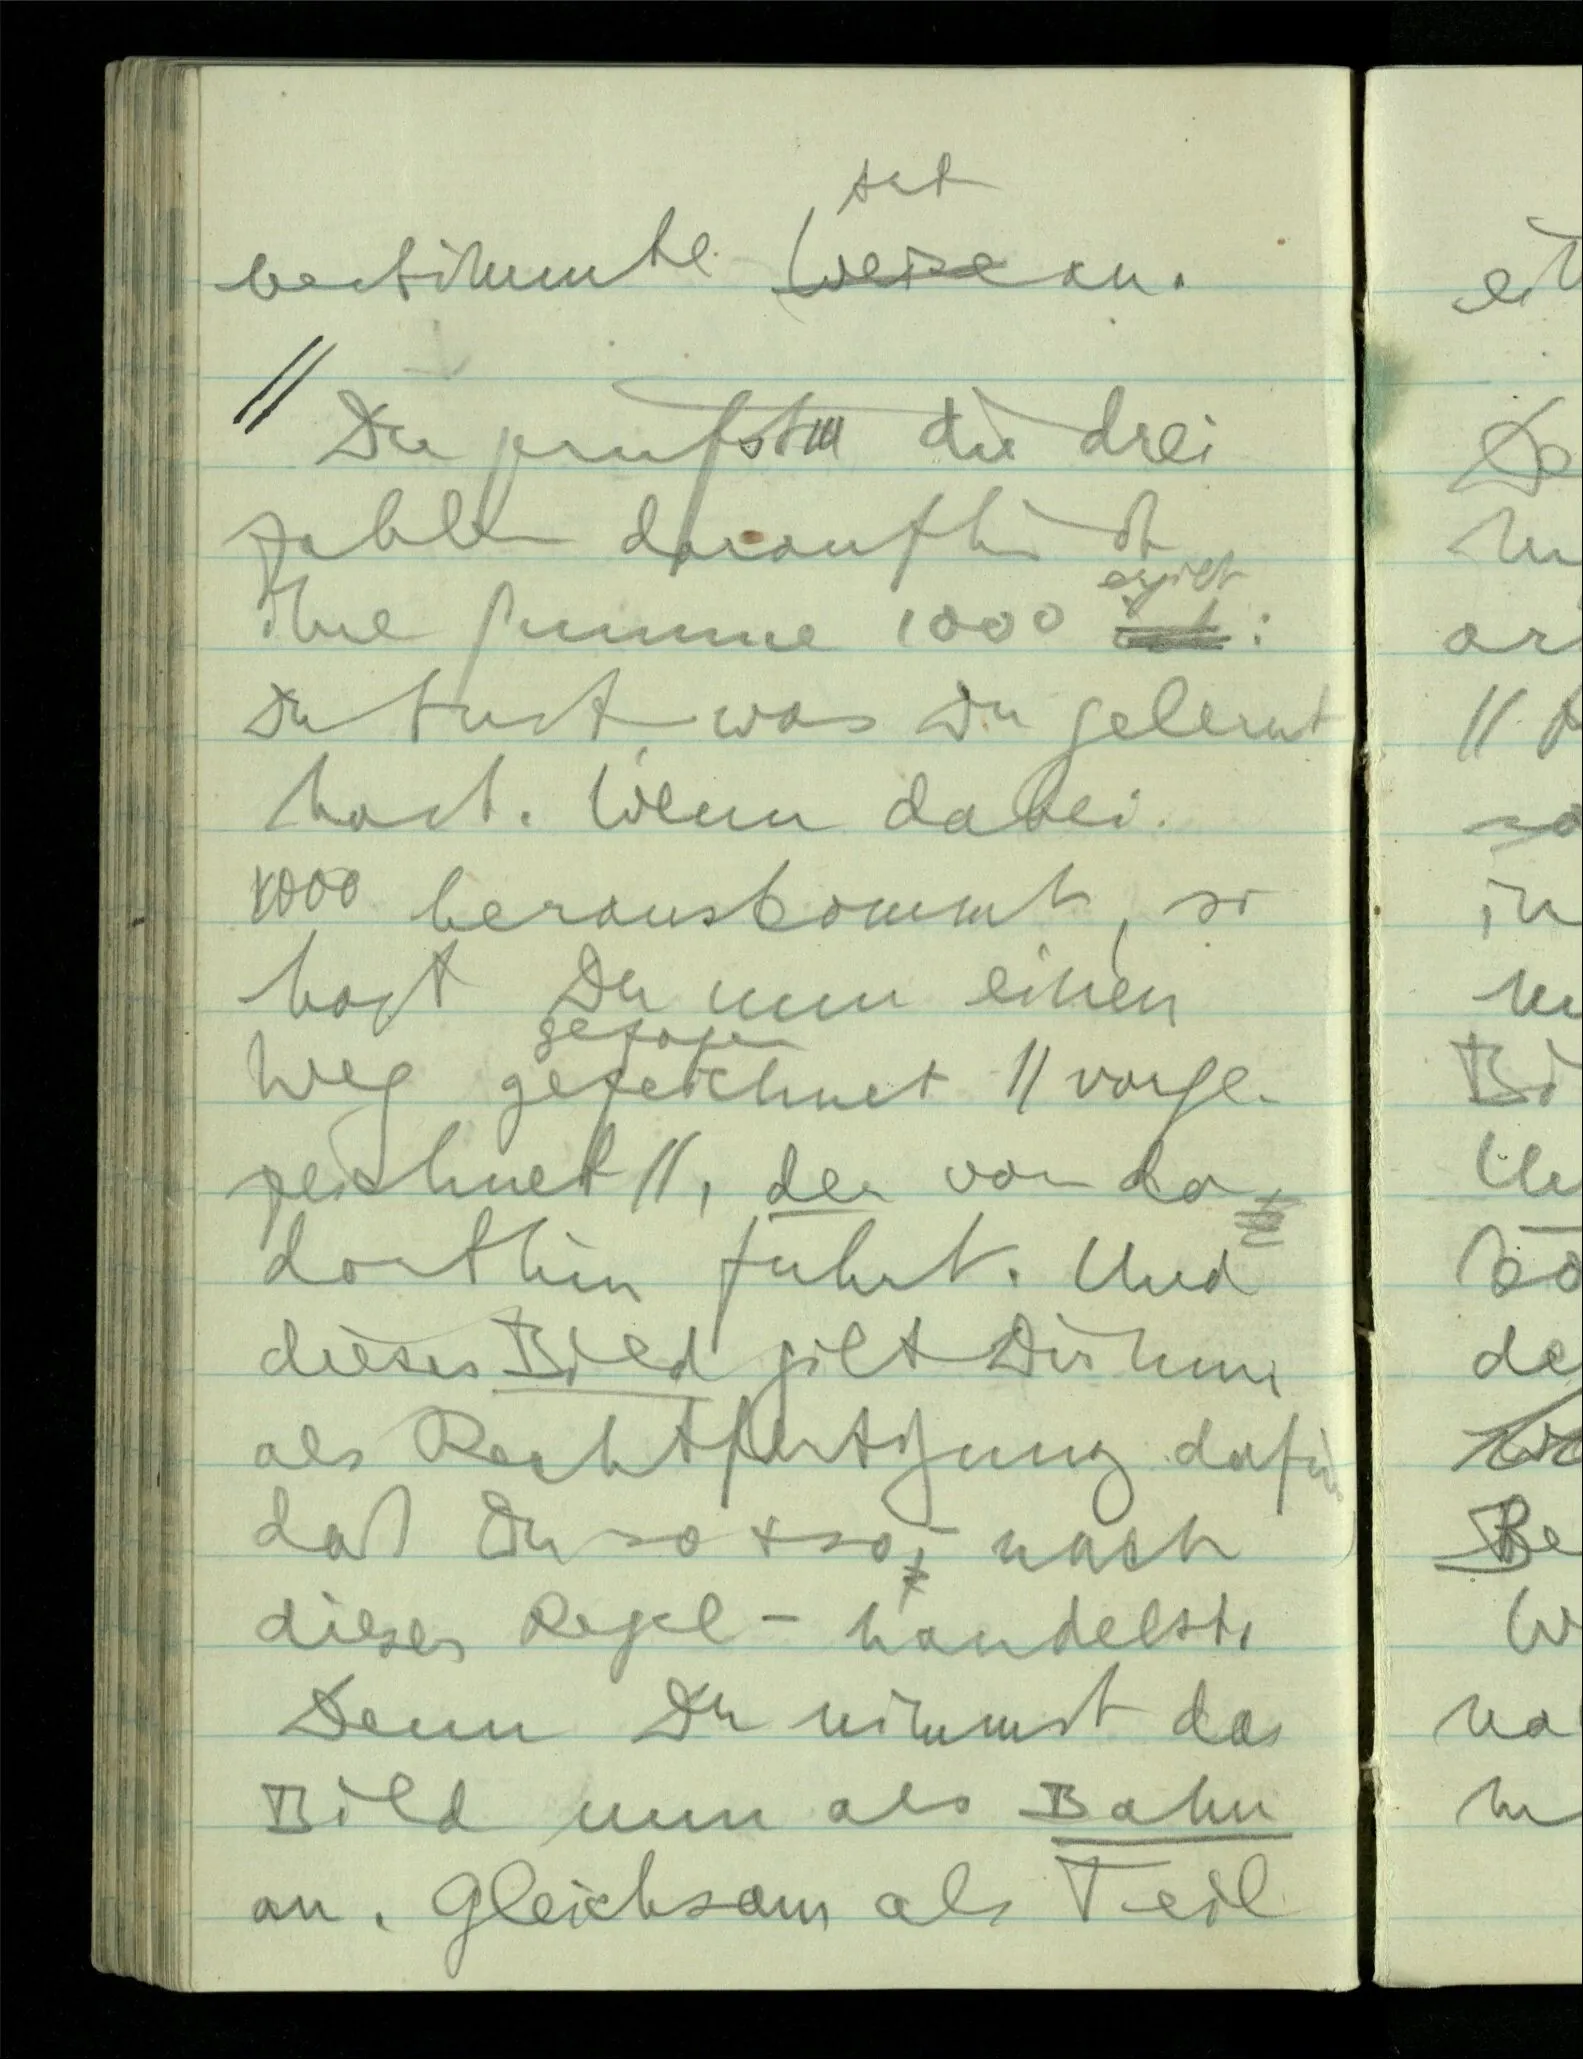 Art
bestimmte Weise an.
// Du prüfst die drei
Zahlen daraufhin ob
ergibt
ihre Summe 1000 ist:
Du tust was Du gelernt
hast. Wenn dabei
1000 herauskommt, so
hast Du nun einen
gezogen
Weg gezeichnet // vorge-
zeichnet //, der von da
dorthin führt. Und
dieses Bild gilt Dir nun
als Rechtfertigung dafür
daß Du so + so – nach
dieser Regel – handelst.
Denn Du nimmst das
Bild nun als Bahn
an. Gleichsam als Teil